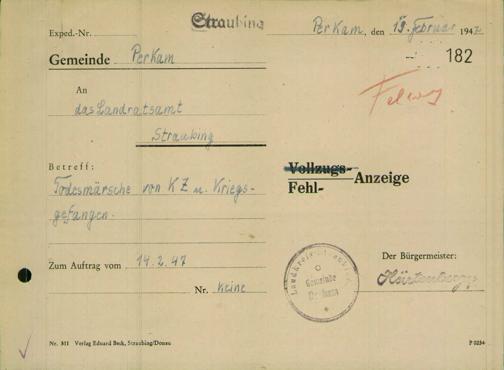 Straubing
Exped.-Nr.
Perkam, den 19. Februar 1947
182
Gemeinde Perkam
An
das Landratsamt
Straubing
Betreff:
Todesmärsche von KZ u. Kriegs-
gefangen.
Vollzugs-
Fehl- Anzeige
Zum Auftrag vom 14.2.47
Nr. keine
Gemeinde
Perkam
Der Bürgermeister:
Nr. 811 Verlag Eduard Beck, Straubing/Donau
P 0234